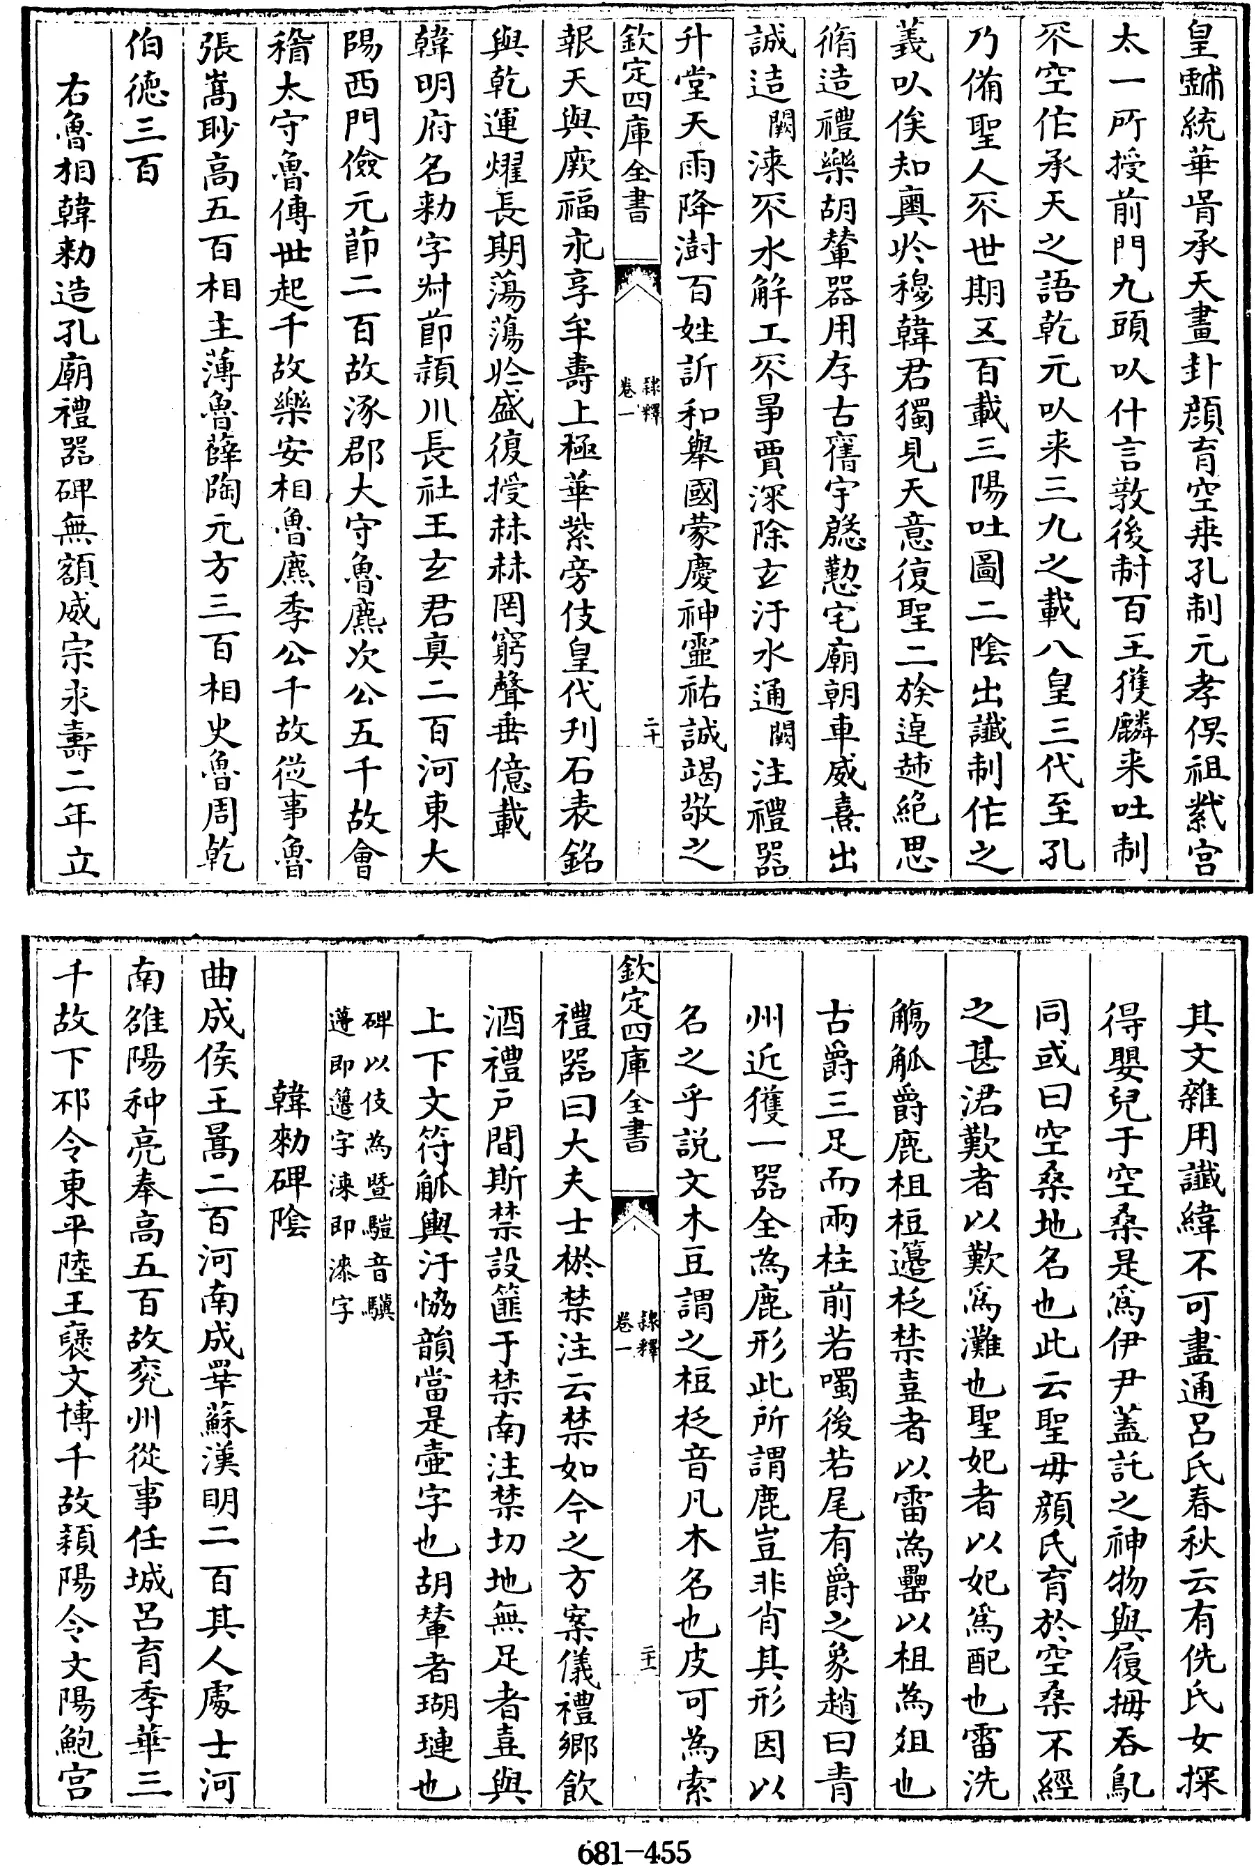 皇戲統華胥承天畫卦顏育空桒孔制元孝俱祖紫宮
太一所授前門九頭以什言敎後制百王獲麟来吐制
不空作承天之語乾元以来三九之載八皇三代至孔
乃備聖人不世期五百載三陽吐圖二陰出讖制作之
義以俟知奧於穆韓君獨見天意復聖二族逴越絕思
脩造禮樂胡輦器用存古舊宇慇懃宅廟朝車威熹出
誠造闕涷不水解工不爭賈深除玄汙水通闕注禮器
升堂天雨降澍百姓訢和舉國蒙慶神靈祐誠竭敬之
欽定四庫全書
隸釋
卷一
二十
報天與厥福永享牟壽上極華紫旁伎皇代刋石表銘
與乾運燿長期蕩蕩於盛復授赫赫罔窮聲垂億載
韓明府名勑字叔節潁川長社王玄君真二百河東大
陽西門儉元節二百故涿郡大守魯麃次公五千故會
稽太守魯傅世起千故樂安相魯麃季公千故從事魯
張嵩眇高五百相主薄魯薛陶元方三百相史魯周乾
伯德三百
右魯相韓勑造孔廟禮器碑無額威宗永壽二年立
其文雜用讖緯不可盡通呂氏春秋云有侁氏女採
得嬰兒于空桑是為伊尹蓋託之神物與履拇吞鳦
同或曰空桑地名也此云聖毋顏氏育於空桑不經
之甚涒歎者以歎為灘也聖妃者以妃為配也雷洗
觴觚爵鹿柤梪籩柉禁壴者以雷為罍以柤為俎也
古爵三足而兩柱前若噣後若尾有爵之象趙曰青
州近獲一器全為鹿形此所謂鹿豈非肖其形因以
名之乎説文木豆謂之梪柉音凡木名也皮可為索
欽定四庫全書
隸釋
卷一
二十一
禮器曰大夫士棜禁注云禁如今之方案儀禮鄉飲
酒禮戶間斯禁設篚于禁南注禁切地無足者壴與
上下文符觚輿汙恊韻當是壷字也胡輦者瑚璉也
碑以伎為暨騹音驥
遵即籩字涑即漆字
韓勑碑陰
曲成侯王暠二百河南成睪蘇漢明二百其人處士河
南雒陽种亮奉高五百故兖州從事任城呂育季華三
千故下邳令東平陸王襃文博千故潁陽令文陽鮑宮
681-455